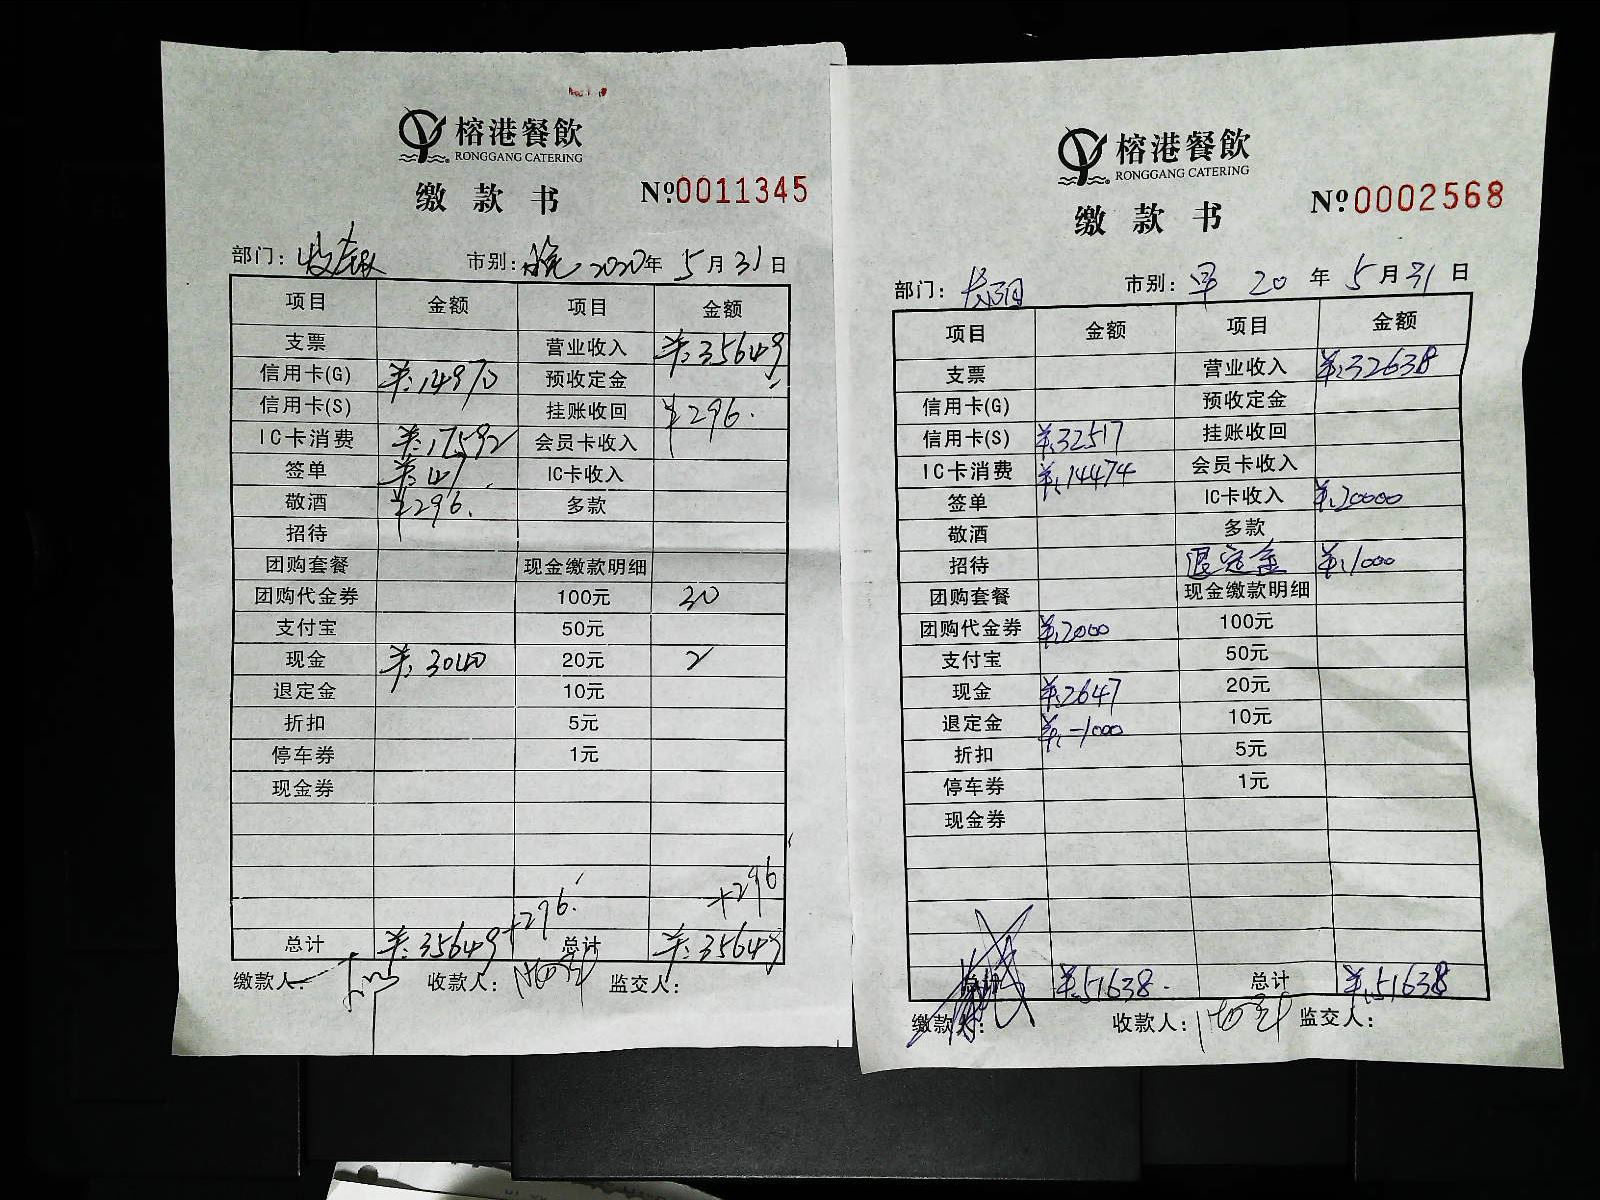 榕港餐飲
RONGGANG CATERING
缴款书 №0011345
部门：收银 市别：晚 2020年5月31日
项目 金额 项目 金额
支票 营业收入 ¥:35649
信用卡(G) ¥:14970 预收定金
信用卡(S) 挂账收回 ¥296.
IC卡消费 ¥:17592 会员卡收入
签单 IC卡收入
敬酒 ¥296. 多款
招待
团购套餐 现金缴款明细
团购代金券 100元 30
支付宝 50元
现金 ¥:3040 20元 2
退定金 10元
折扣 5元
停车券 1元
现金券
+296
+296.
总计 ¥:35649 总计 ¥:35649
缴款人： 收款人： 监交人：
榕港餐飲
RONGGANG CATERING
缴款书 №0002568
部门： 市别：早 20年5月31日
项目 金额 项目 金额
支票 营业收入 ¥:32638
信用卡(G) 预收定金
信用卡(S) ¥:32517 挂账收回
IC卡消费 ¥:14474 会员卡收入
签单 IC卡收入 ¥:20000
敬酒 多款
招待 退定金 ¥:1000
团购套餐 现金缴款明细
团购代金券 ¥:2000 100元
支付宝 50元
现金 ¥:2647 20元
退定金 ¥:-1000 10元
折扣 5元
停车券 1元
现金券
总计 ¥:51638. 总计 ¥:51638
缴款人： 收款人： 监交人：